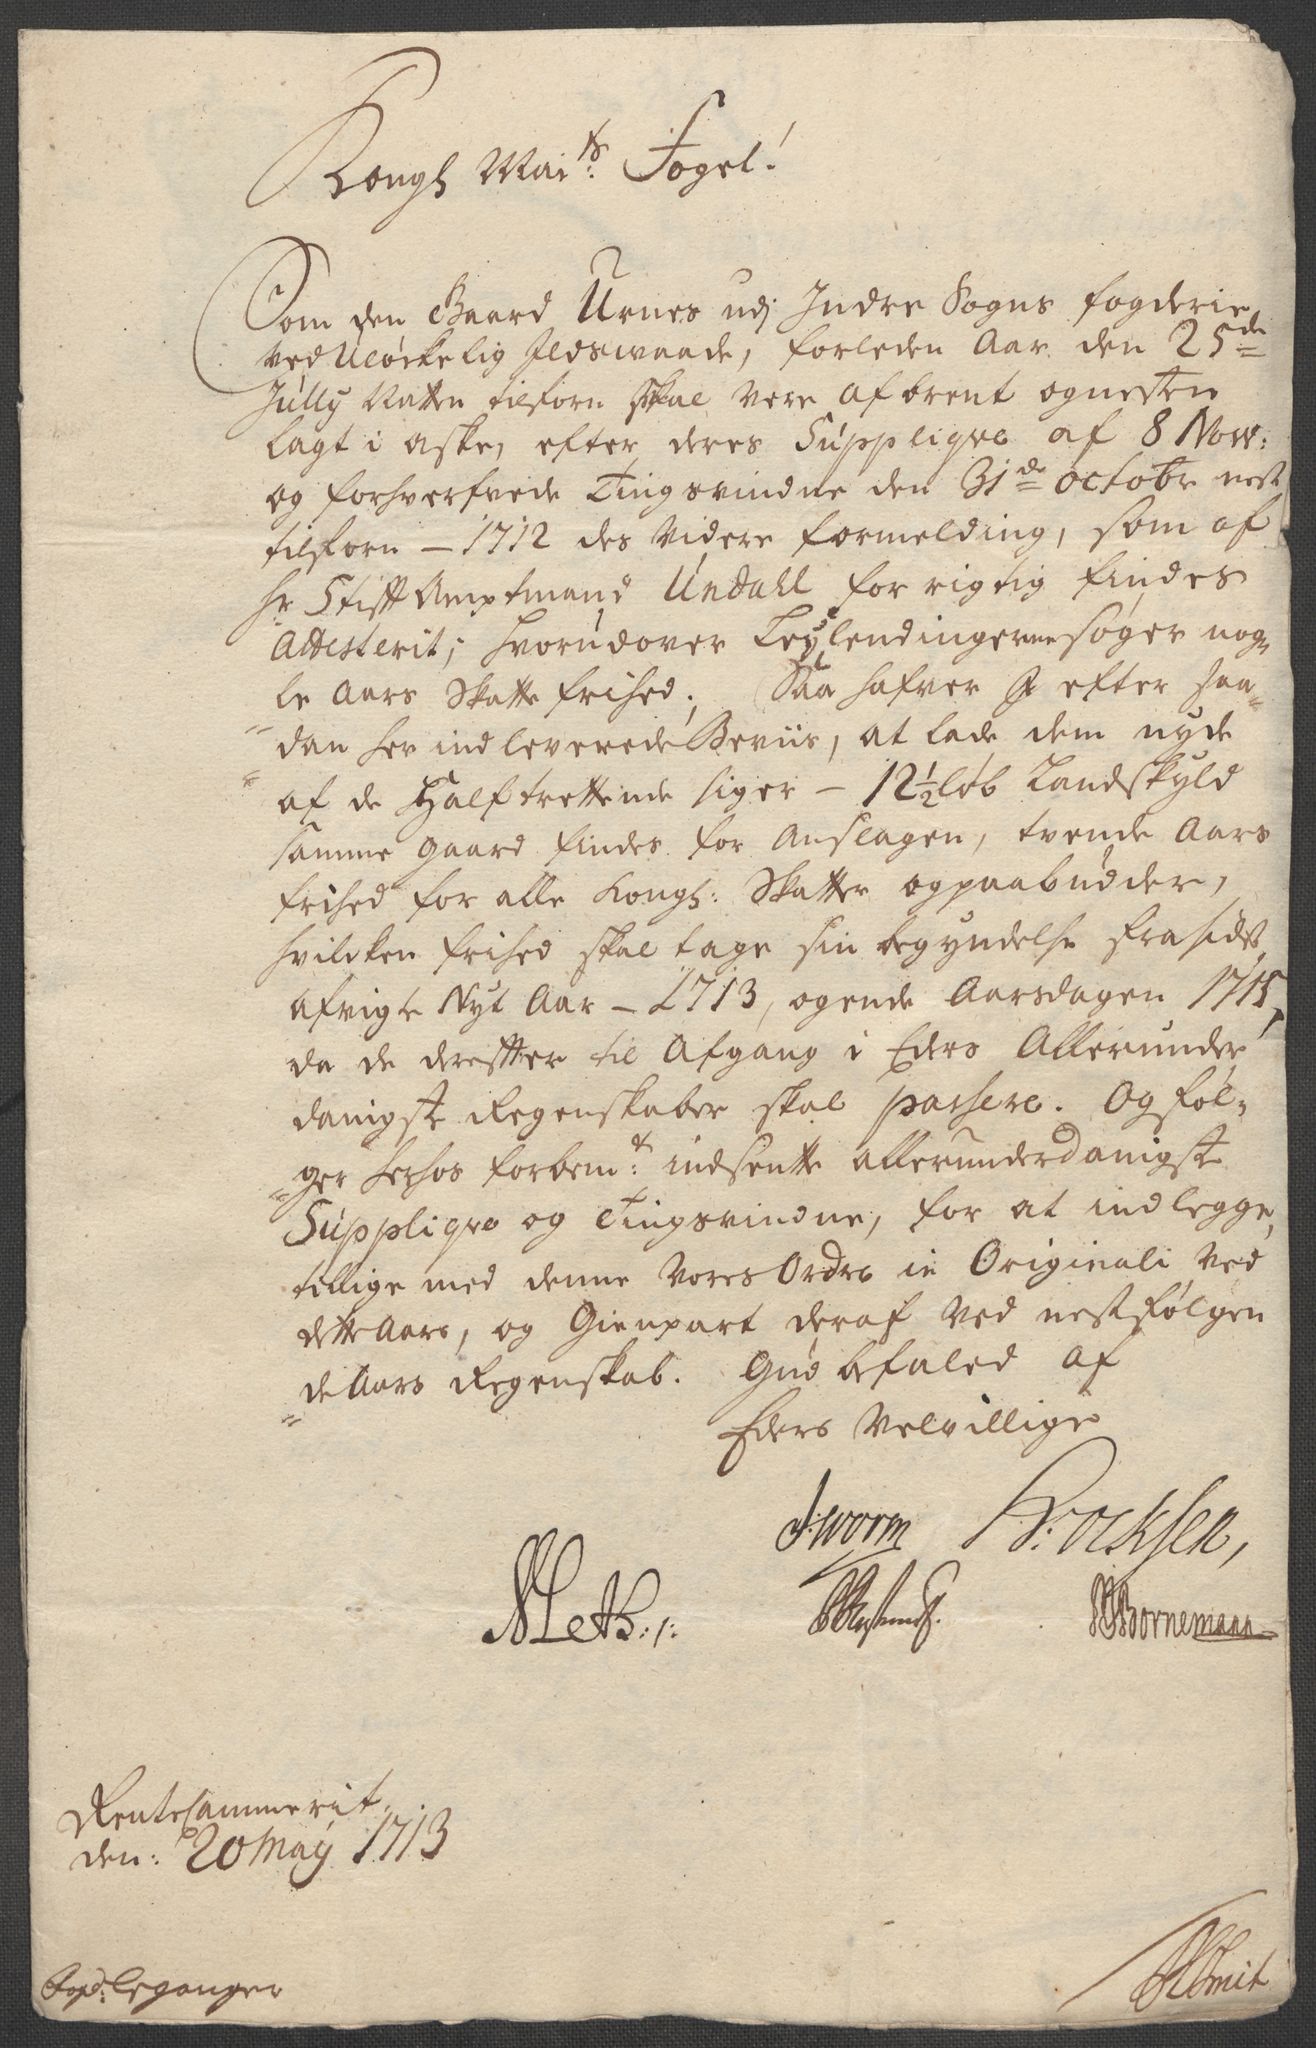 Kongl Mai:ts Foget!
Som den Gaard Urnes udj Indre Sogns fogderie
ved Ulöckelig Ildswaade, forleden Aar den 25de
Jully Natten tilforn skal vere afbrent ognesten
lagt i aske, efter deres Suppliqve af 8 Novr:
og forhverfvede Tingsvindne den 31de octobr nest
tilforn – 1712 des videre formelding, som af
hr Stift Amptmand Undahll for rigtig findes
Attesterit; hvorudover Leylendingerne söger nog-
le Aars Skatte frihed; Saa hafver I efter saa-
dan her indleverede Beviis, at lade dem nyde
af de Halftrettende siger – 12½ löb Landskyld
samme gaard findes for Anslagen, tvende Aars
frihed for alle Kongl: Skatter ogpaabudder,
hvilcken frihed skal tage sin begyndelse frasidst
afvigte Nyt Aar – 1713, ogende Aarsdagen 1715,
da de derefter til Afgang i Eders Allerunder
danigste Regenskaber skal passere. Og föl-
ger herhos forbemte: indsentte allerunderdanigste
Suppliqve og Tingsvindne, for at indlegge,
tillige med denne vores Ordre in Originali ved
dette Aars, og Gienpart deraf ved nestfölgen
de Aars Regenskab. Gud befaled af
Eders Velvillige
J. Worm
Bornemann
Rentecammerit.
den: 20 May 1713
Fogd: Leganger
Smit